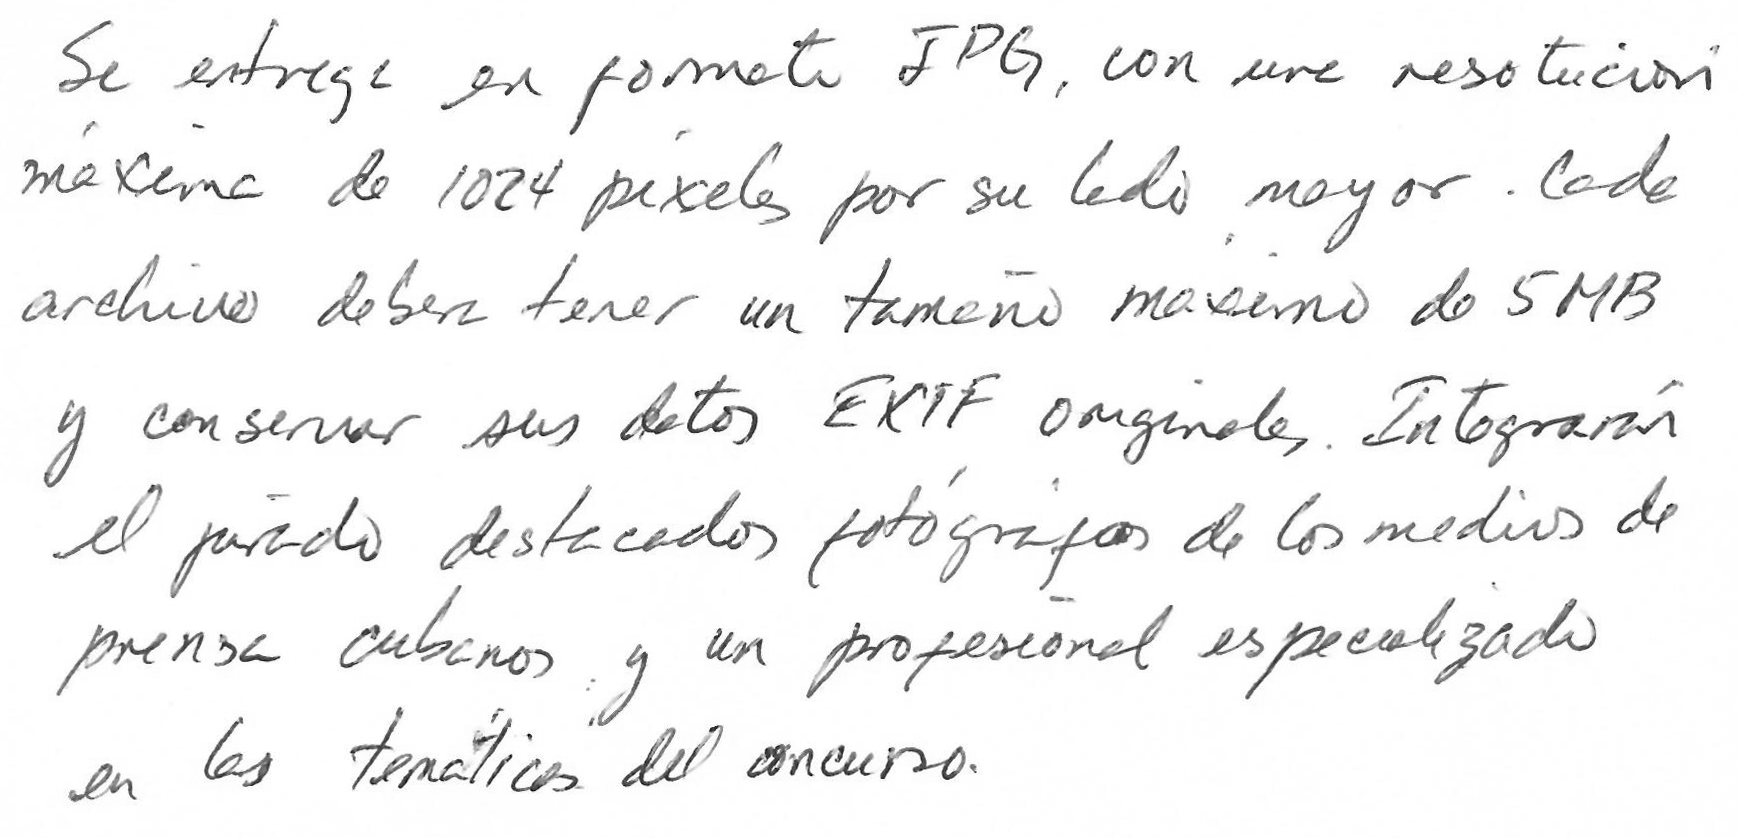 Se entrega en formato JPG, con una resolución
máxima de 1024 píxeles por su lado mayor. Cada
archivo deberá tener un tamaño máximo de 5 MB
y conservar sus datos EXIF originales. Integrarán
el jurado destacados fotógrafos de los medios de
prensa cubanos y un profesional especializado
en las temáticas del concurso.